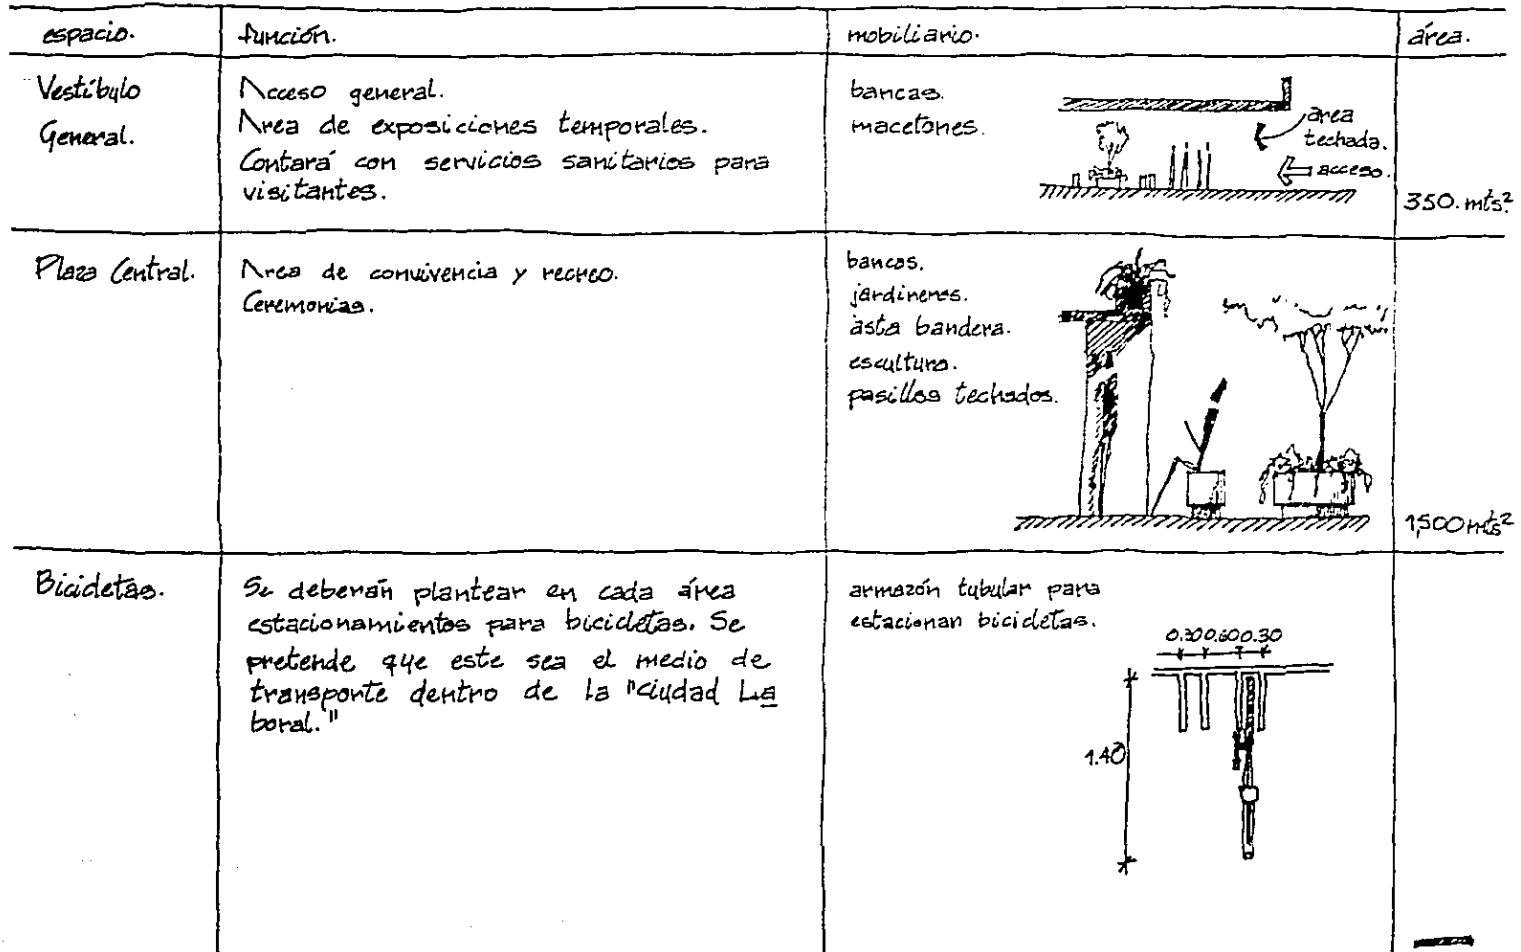 espacio.
función.
mobiliario.
área.
Vestíbulo
General.
Acceso general.
Area de exposiciones temporales.
Contará con servicios sanitarios para
visitantes.
bancas.
macetones.
área
techada.
acceso.
350. mts.2
Plaza Central.
Area de convivencia y recreo.
Ceremonias.
bancas.
jardineras.
asta bandera.
escultura.
pasillos techados.
1,500 mts2
Bicicletas.
Se deberán plantear en cada área
estacionamientos para bicicletas. Se
pretende que este sea el medio de
transporte dentro de la "Ciudad La
boral."
armazón tubular para
estacionar bicicletas.
0.30 0.60 0.30
1.40